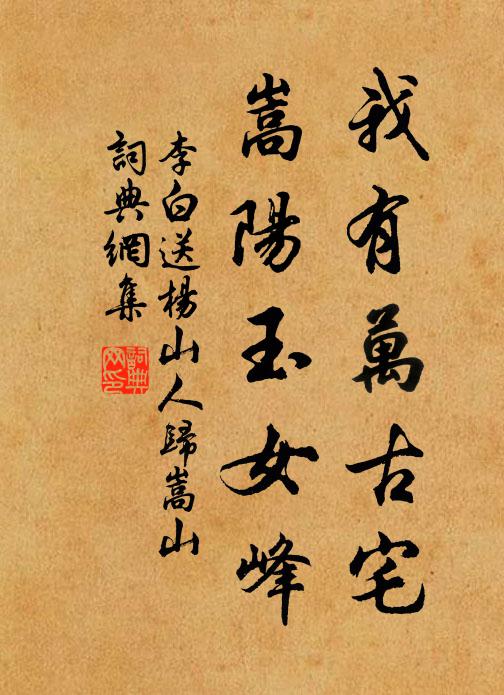 我有萬古宅
嵩陽玉女峰
李白送楊山人歸嵩山
詞典網集
詞典
网印